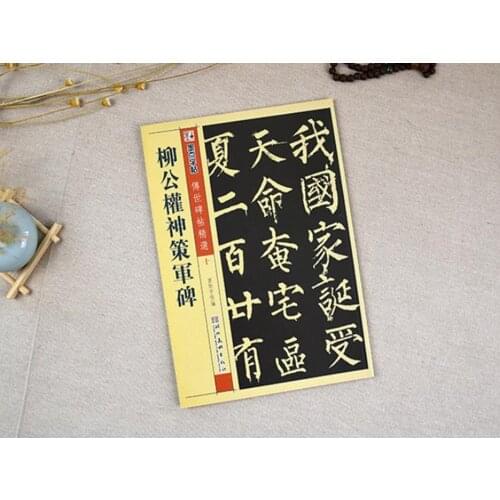 柳公權神策軍碑
墨点字帖
傳世碑帖精選
我國家誕受
天命奄宅區
夏二百廿有